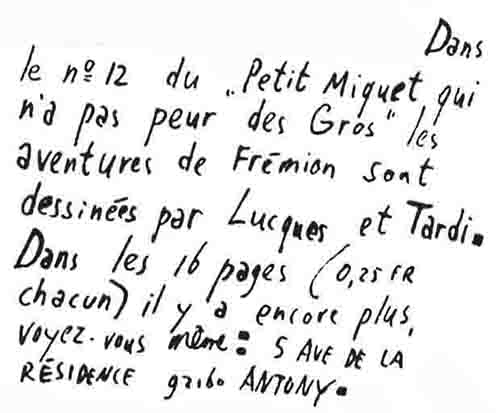 Dans
le nº 12 du „Petit Miquet qui
n'a pas peur des Gros" les
aventures de Frémion sont
dessinées par Lucques et Tardi.
Dans les 16 pages (0,25 FR
chacun) il y a encore plus,
voyez-vous même: 5 AVE DE LA
RÉSIDENCE ANTONY.